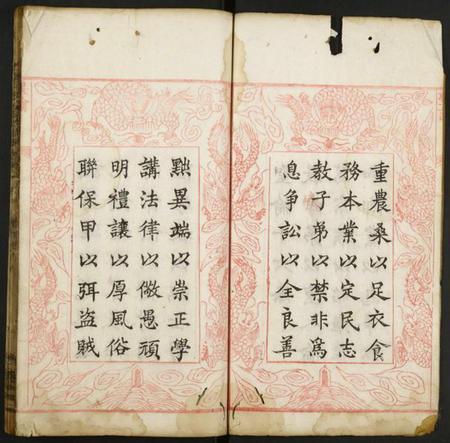 重農桑以足衣食
務本業以定民志
教子弟以禁非為
息爭訟以全良善
黜異端以崇正學
講法律以儆愚頑
明禮讓以厚風俗
聯保甲以弭盜賊